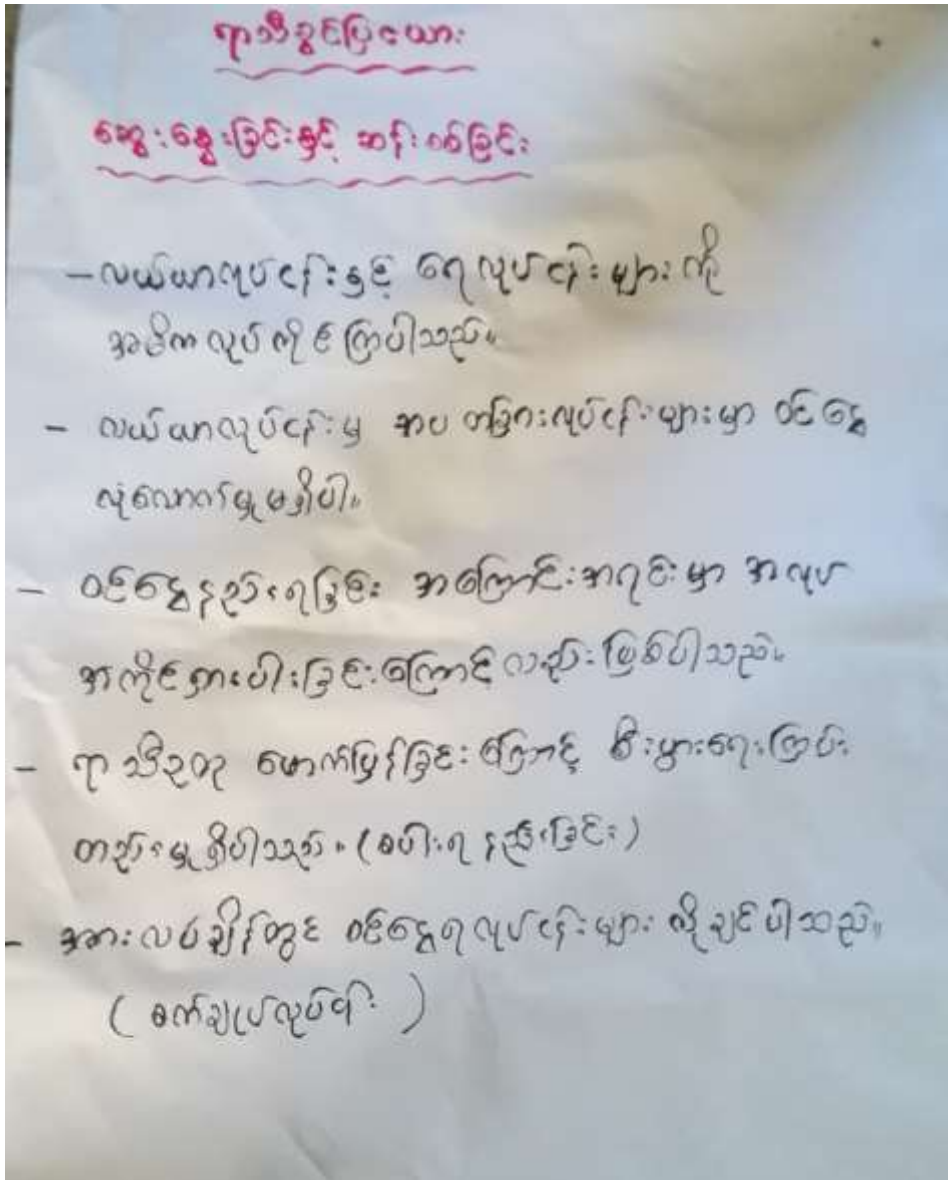 ရာသီခွင်ပြဇယား
ဆွေးနွေးခြင်းနှင့် ဆန်းစစ်ခြင်း
- လယ်ယာလုပ်ငန်းနှင့် ရေလုပ်ငန်းများကို
အဓိကလုပ်ကိုင်ကြပါသည်။
- လယ်ယာလုပ်ငန်းမှ အပ တခြားလုပ်ငန်းများမှာ ဝင်ငွေ
လုံလောက်မှုမရှိပါ။
- ဝင်ငွေနည်းရခြင်း အကြောင်းအရင်းမှာ အလုပ်
အကိုင်ရှားပါးခြင်းကြောင့်လည်းဖြစ်ပါသည်။
- ရာသီဥတု ဖောက်ပြန်ခြင်းကြောင့် စီးပွားရေးကြပ်
တည်းမှုရှိပါသည်။ (စပါးရနည်းခြင်း)
- အားလပ်ချိန်တွင် ဝင်ငွေရလုပ်ငန်းများ လိုချင်ပါသည်။
(စက်ချုပ်လုပ်ငန်း)